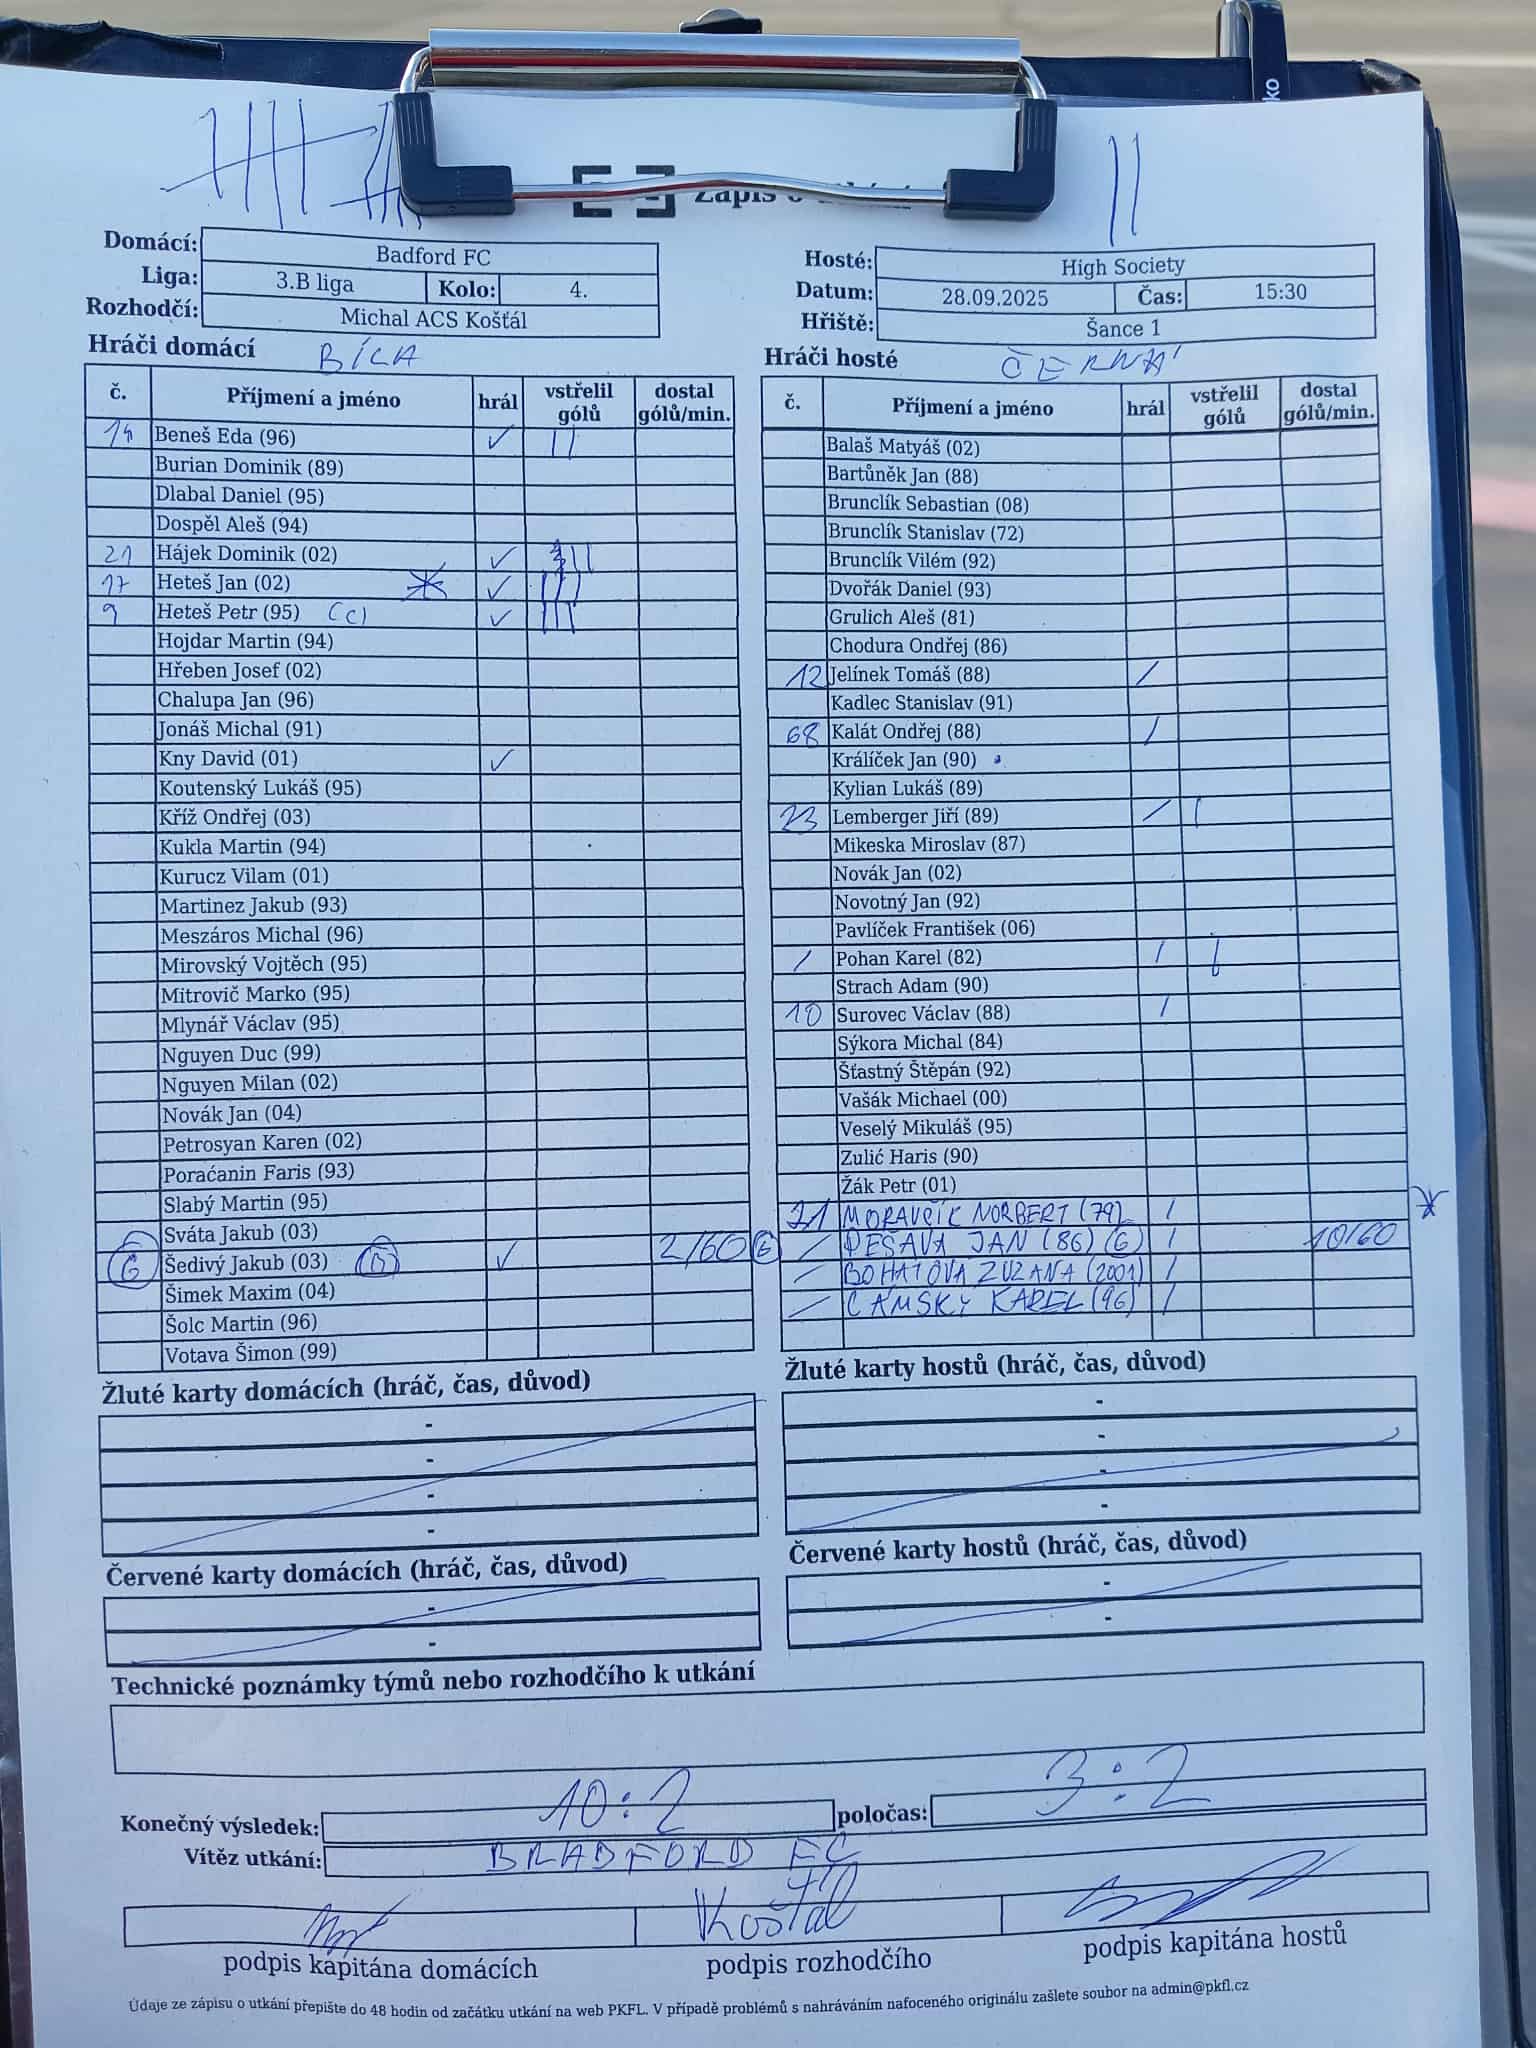 ko
Zápis o
Domácí: Badford FC
Liga: 3.B liga Kolo: 4.
Rozhodčí: Michal ACS Košťál
Hosté: High Society
Datum: 28.09.2025 Čas: 15:30
Hřiště: Šance 1
Hráči domácí BÍLA
č. Příjmení a jméno hrál vstřelil gólů dostal gólů/min.
14 Beneš Eda (96) ✓ ||
Burian Dominik (89)
Dlabal Daniel (95)
Dospěl Aleš (94)
21 Hájek Dominik (02) ✓
17 Heteš Jan (02) * ✓ |||
9 Heteš Petr (95) (C) ✓ |||
Hojdar Martin (94)
Hřeben Josef (02)
Chalupa Jan (96)
Jonáš Michal (91)
Kny David (01) ✓
Koutenský Lukáš (95)
Kříž Ondřej (03)
Kukla Martin (94)
Kurucz Vilam (01)
Martinez Jakub (93)
Meszáros Michal (96)
Mirovský Vojtěch (95)
Mitrovič Marko (95)
Mlynář Václav (95)
Nguyen Duc (99)
Nguyen Milan (02)
Novák Jan (04)
Petrosyan Karen (02)
Poraćanin Faris (93)
Slabý Martin (95)
Sváta Jakub (03)
G Šedivý Jakub (03) ✓ 2/60
Šimek Maxim (04)
Šolc Martin (96)
Votava Šimon (99)
Hráči hosté ČERNÁ
č. Příjmení a jméno hrál vstřelil gólů dostal gólů/min.
Balaš Matyáš (02)
Bartůněk Jan (88)
Brunclík Sebastian (08)
Brunclík Stanislav (72)
Brunclík Vilém (92)
Dvořák Daniel (93)
Grulich Aleš (81)
Chodura Ondřej (86)
12 Jelínek Tomáš (88) /
Kadlec Stanislav (91)
68 Kalát Ondřej (88) /
Králíček Jan (90)
Kylian Lukáš (89)
23 Lemberger Jiří (89) / |
Mikeska Miroslav (87)
Novák Jan (02)
Novotný Jan (92)
Pavlíček František (06)
/ Pohan Karel (82) / |
Strach Adam (90)
10 Surovec Václav (88) /
Sýkora Michal (84)
Šťastný Štěpán (92)
Vašák Michael (00)
Veselý Mikuláš (95)
Zulić Haris (90)
Žák Petr (01)
21 MORAVČÍK NORBERT (79) / *
G / PEŠAVA JAN (86) (G) / 10/60
/ BOHATOVA ZUZANA (2001) /
/ CAMSKÝ KAREL (96) /
Žluté karty domácích (hráč, čas, důvod)
-
-
-
-
Žluté karty hostů (hráč, čas, důvod)
-
-
-
-
Červené karty domácích (hráč, čas, důvod)
-
-
Červené karty hostů (hráč, čas, důvod)
-
-
Technické poznámky týmů nebo rozhodčího k utkání
Konečný výsledek: 10:2 poločas: 3:2
Vítěz utkání: BRADFORD FC
Košťál
podpis kapitána domácích podpis rozhodčího podpis kapitána hostů
Údaje ze zápisu o utkání přepište do 48 hodin od začátku utkání na web PKFL. V případě problémů s nahráváním nafoceného originálu zašlete soubor na admin@pkfl.cz